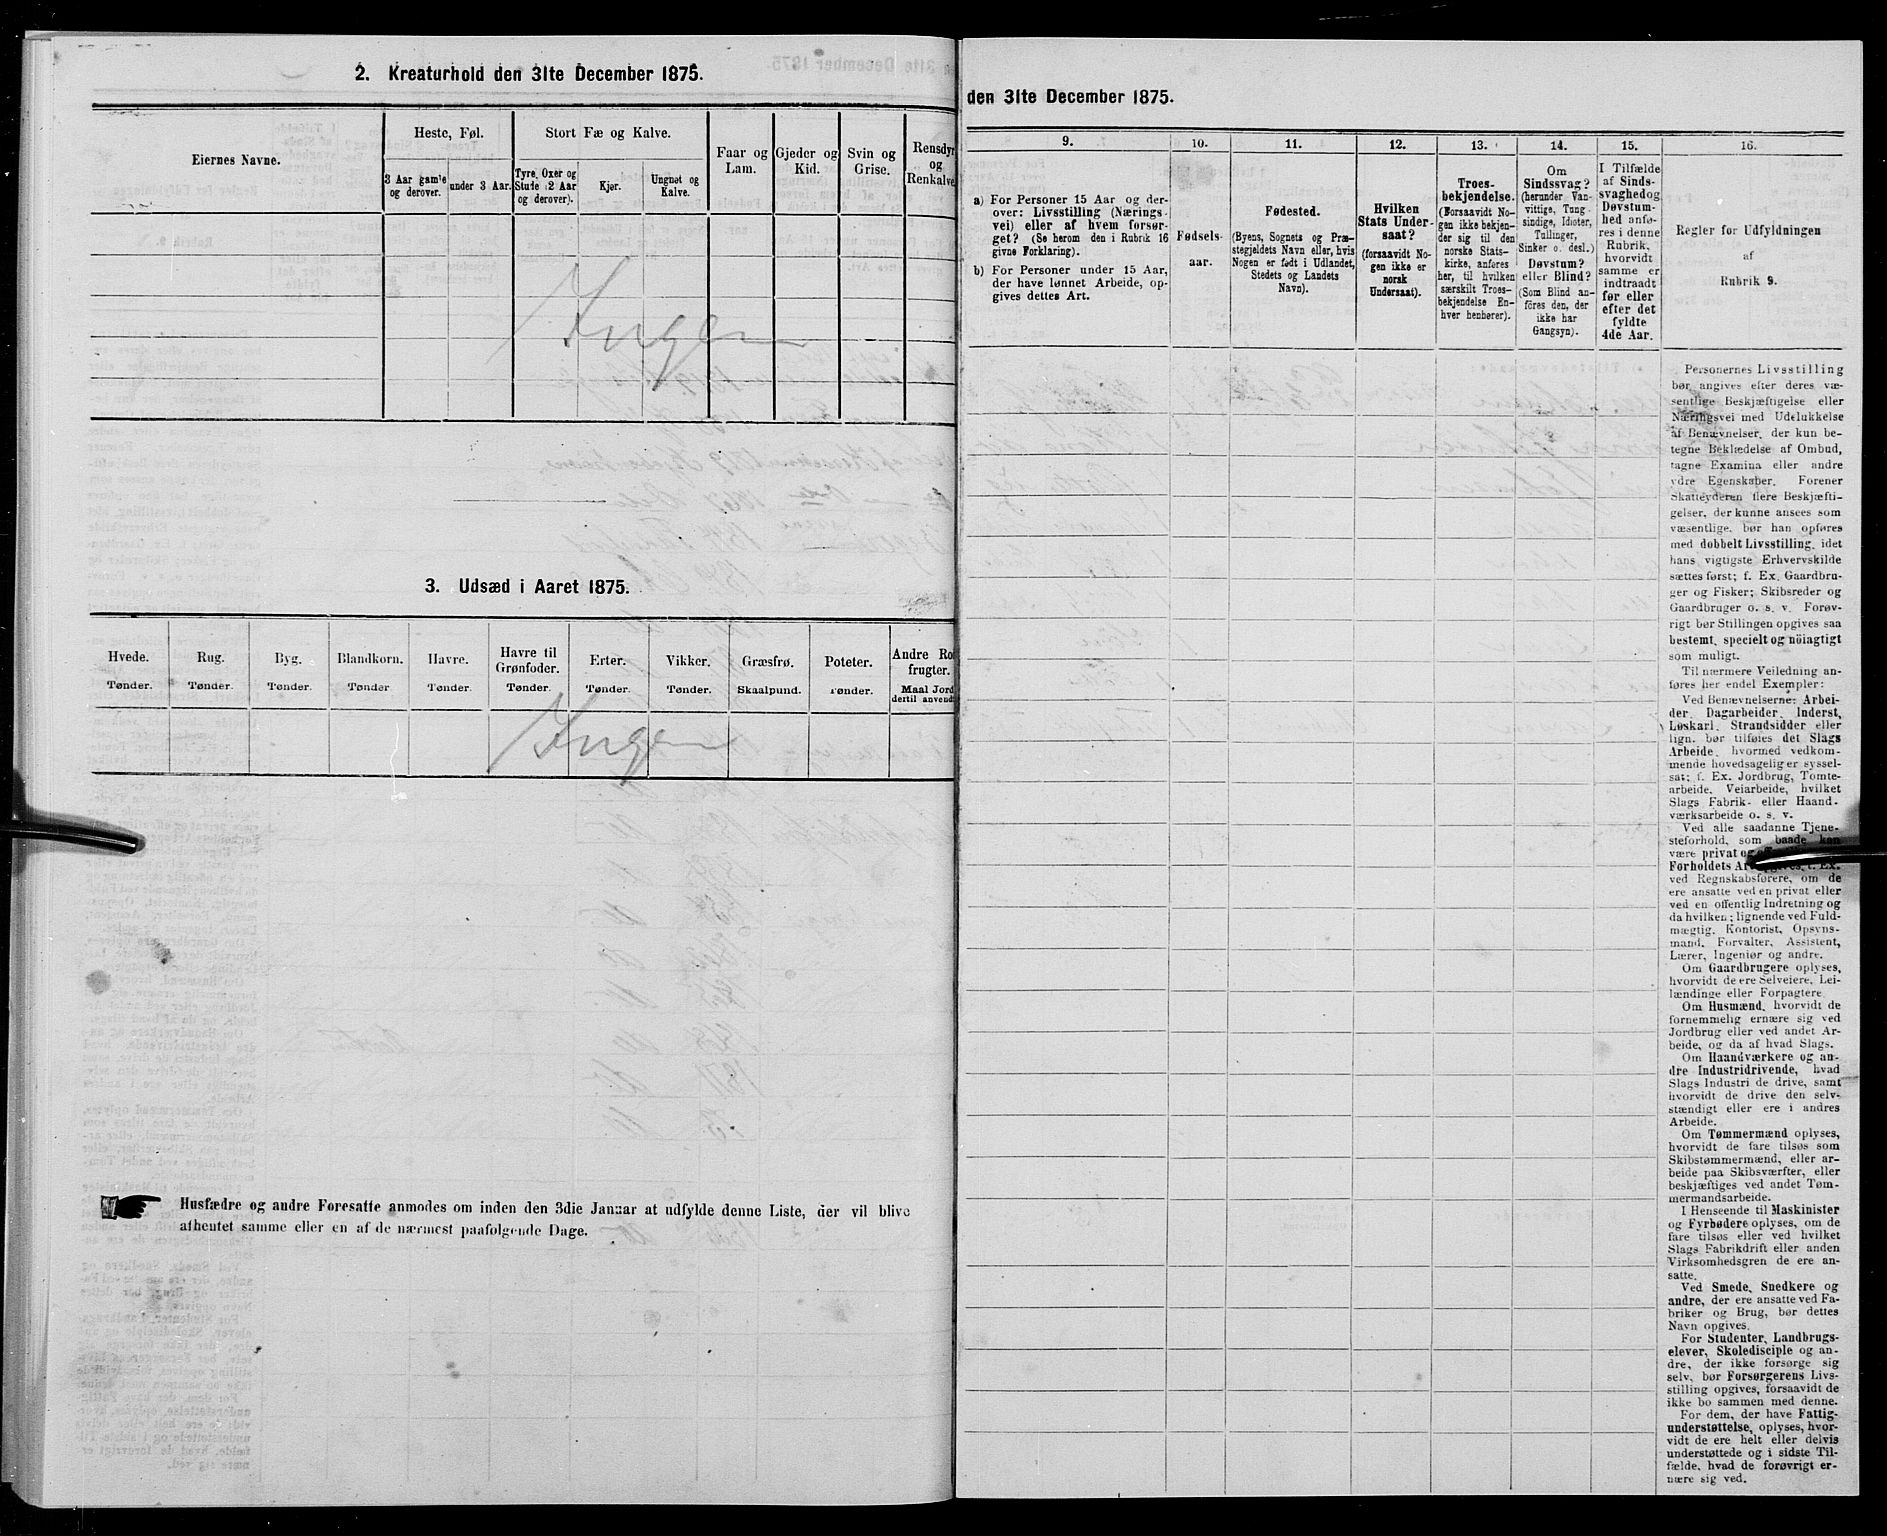 2. Kreaturhold den 31te December 1875.
Eiernes Navne.
Heste, Føl.
3 Aar gamle
og derover.
under 3 Aar.
Stort Fæ og Kalve.
Tyre, Oxer og
Stude (2 Aar
og derover).
Kjør.
Ungnøt og
Kalve.
Faar og
Lam.
Gjeder og
Kid.
Svin og
Grise.
Rensdyr
og
Renkalve
Ingen
3. Udsæd i Aaret 1875.
Hvede.
Tønder.
Rug.
Tønder.
Byg.
Tønder.
Blandkorn.
Tønder
Havre.
Tønder.
Havre til
Grønfoder.
Tønder.
Erter.
Tønder.
Vikker.
Tønder.
Græsfrø.
Skaalpund.
Poteter.
Tønder.
Andre Ro
frugter.
Maal Jord
dertil anvend
Ingen
Husfædre og andre Foresatte anmodes om inden den 3die Januar at udfylde denne Liste, der vil blive
afhentet samme eller en af de nærmest paafølgende Dage.
den 31te December 1875.
9.
a) For Personer 15 Aar og der-
over: Livsstilling (Nærings-
vei) eller af hvem forsør-
get? (Se herom den i Rubrik 16
givne Forklaring).
b) For Personer under 15 Aar,
der have lønnet Arbeide, op-
gives dettes Art.
10.
Fødsels-
aar.
11.
Fødested.
(Byens, Sognets og Præ-
stegjeldets Navn eller, hvis
Nogen er født i Udlandet,
Stedets og Landets
Navn).
12.
Hvilken
Stats Under-
saat?
(forsaavidt No-
gen ikke er
norsk
Undersaat).
13.
Troes-
bekjendelse.
(Forsaavidt No-
gen ikke bekjen-
der sig til den
norske Stats-
kirke, anføres
her, til hvilken
særskilt Troes-
bekjendelse En-
hver henhører).
14.
Om
Sindssvag?
(herunder Van-
vittige, Tung-
sindige, Idioter,
Tullinger,
Sinker o. desl.)
Døvstum?
eller Blind?
(Som Blind an-
føres den, der
ikke har
Gangsyn).
15.
I Tilfælde
af Sinds-
svaghed og
Døvstum-
hed anfø-
res i denne
Rubrik,
hvorvidt
samme er
indtraadt
før eller
efter det
fyldte
4de Aar.
16.
Regler for Udfyldningen
af
Rubrik 9.
Personernes Livsstilling
bør angives efter deres væ-
sentlige Beskjæftigelse eller
Næringsvei med Udelukkelse
af Benævnelser, der kun be-
tegne Beklædelse af Ombud,
tagne Examina eller andre
ydre Egenskaber. Forener
Skatteyderen flere Beskjæfti-
gelser, der kunne ansees som
væsentlige, bør han opføres
med dobbelt Livsstilling, idet
hans vigtigste Erhvervskilde
sættes først; f. Ex. Gaardbru-
ger og Fisker; Skibsreder og
Gaardbruger o. s. v. Forøv-
rigt bør Stillingen opgives saa
bestemt, specielt og nöiagtigt
som muligt.
Til nærmere Veiledning an-
føres her endel Exempler:
Ved Benævnelserne: Arbei-
der, Dagarbeider, Inderst,
Løskarl, Strandsidder eller
lign. bør tilføies det Slags
Arbeide, hvormed vedkom-
mende hovedsagelig er syssel-
sat; f. Ex. Jordbrug, Tomte-
arbeide, Veiarbeide, hvilket
Slags Fabrik- eller Haand-
værksarbeide o. s. v.
Ved alle saadanne Tjene-
steforhold, som baade kan
være privat og
Forholdets Art opgives, f. Ex.
ved Regnskabsførere, om de
ere ansatte ved en privat eller
ved en offentlig Indretning og
da hvilken; lignende ved Fuld-
mægtig, Kontorist, Opsyns-
mand, Forvalter, Assistent,
Lærer, Ingeniør og andre.
Om Gaardbrugere oplyses,
hvorvidt de ere Selveiere, Lei-
lændinge eller Forpagtere
Om Husmænd, hvorvidt de
fornemmelig ernære sig ved
Jordbrug eller ved andet Ar-
beide, og da af hvad Slags.
Om Haandværkere og an-
dre Industridrivende, hvad
Slags Industri de drive, samt
hvorvidt de drive den selv-
stændigt eller ere i andres
Arbeide.
Om Tømmermænd oplyses,
hvorvidt de fare tilsøs som
Skibstømmermænd, eller ar-
beide paa Skibsværfter, eller
beskjæftiges ved andet Tøm-
mermandsarbeide.
I Henseende til Maskinister
og Fyrbødere oplyses, om de
fare tilsøs eller ved hvilket
Slags Fabrikdrift eller anden
Virksomhedsgren de ere an-
satte.
Ved Smede, Snedkere og
andre, der ere ansatte ved Fa-
briker og Brug, bør dettes
Navn opgives.
For Studenter, Landbrugs-
elever, Skoledisciple og an-
dre, der ikke forsørge sig
selv, bør Forsørgerens Livs-
stilling opgives, forsaavidt de
ikke bo sammen med denne.
For dem, der have Fattig-
understøttelse, oplyses, hvor-
vidt de ere helt eller delvis
understøttede og i sidste Til-
fælde, hvad de forøvrigt er-
nære sig ved.